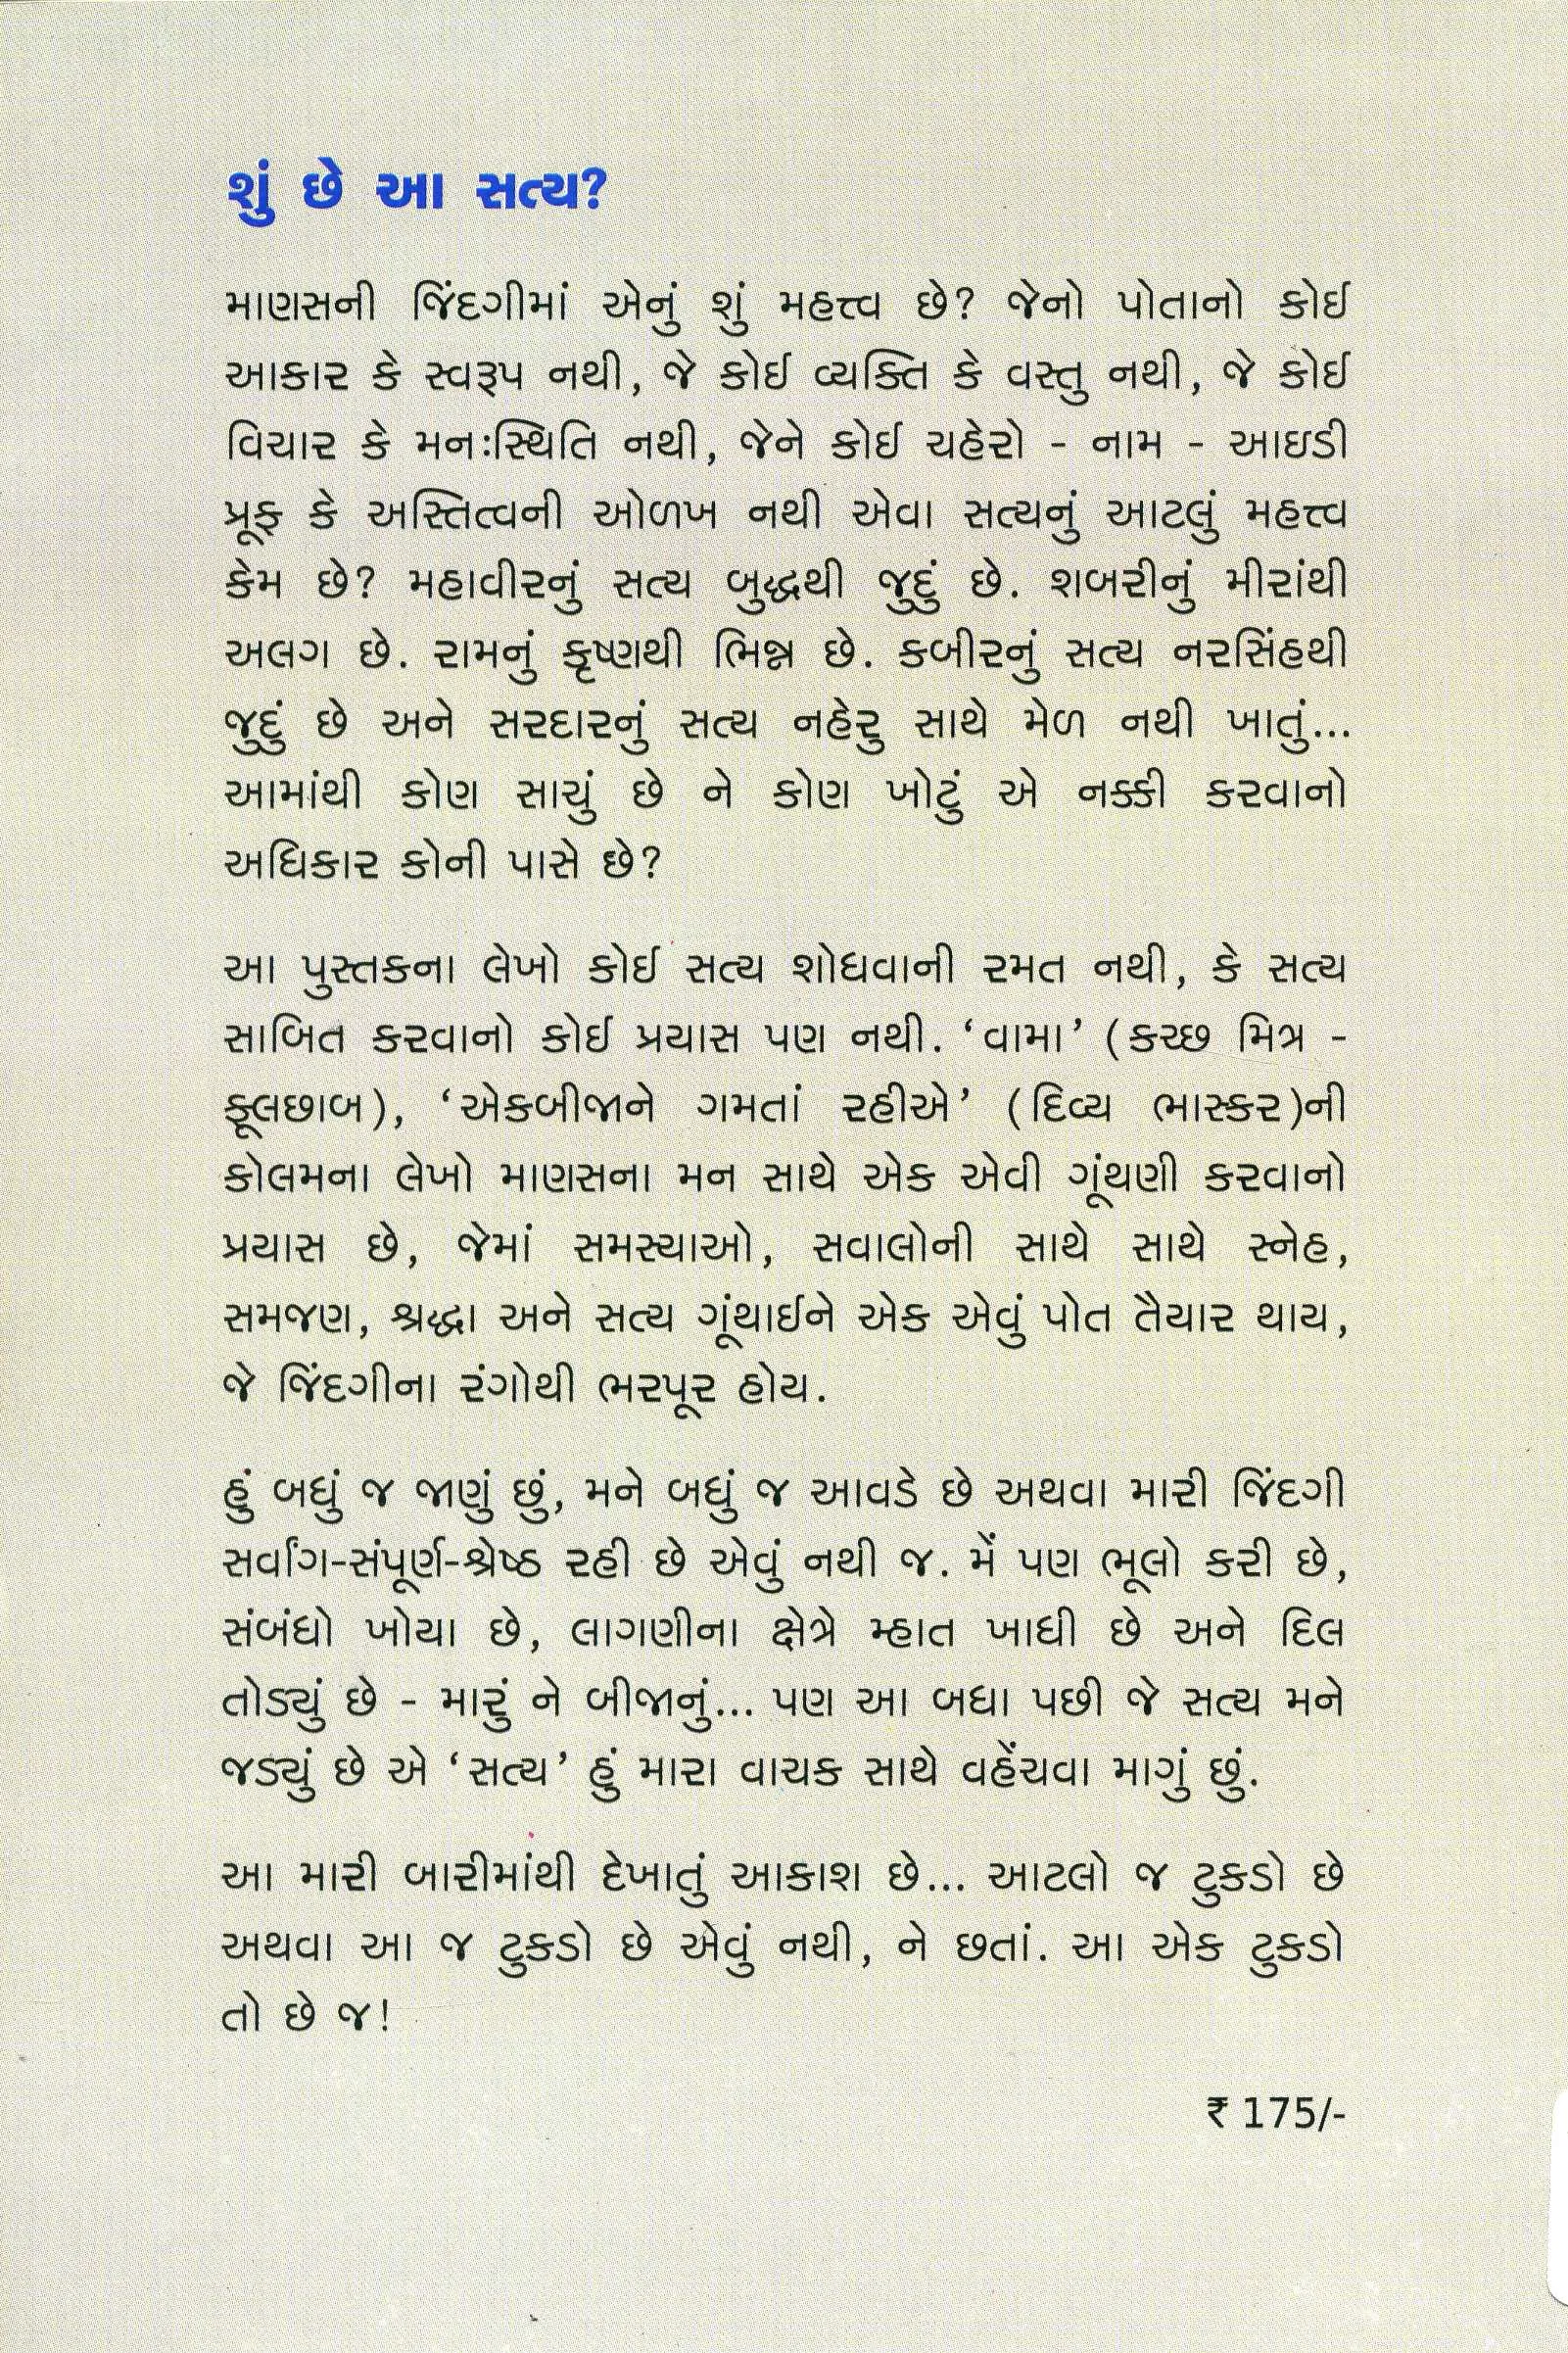 શું છે આ સત્ય?
માણસની જિંદગીમાં એનું શું મહત્ત્વ છે? જેનો પોતાનો કોઈ
આકાર કે સ્વરૂપ નથી, જે કોઈ વ્યક્તિ કે વસ્તુ નથી, જે કોઈ
વિચાર કે મનઃસ્થિતિ નથી, જેને કોઈ ચહેરો - નામ - આઇડી
પ્રૂફ કે અસ્તિત્વની ઓળખ નથી એવા સત્યનું આટલું મહત્ત્વ
કેમ છે? મહાવીરનું સત્ય બુદ્ધથી જુદું છે. શબરીનું મીરાંથી
અલગ છે. રામનું કૃષ્ણથી ભિન્ન છે. કબીરનું સત્ય નરસિંહથી
જુદું છે અને સરદારનું સત્ય નહેરુ સાથે મેળ નથી ખાતું...
આમાંથી કોણ સાચું છે ને કોણ ખોટું એ નક્કી કરવાનો
અધિકાર કોની પાસે છે?
આ પુસ્તકના લેખો કોઈ સત્ય શોધવાની રમત નથી, કે સત્ય
સાબિત કરવાનો કોઈ પ્રયાસ પણ નથી. ‘વામા’ (કચ્છ મિત્ર -
ફૂલછાબ), ‘એકબીજાને ગમતાં રહીએ’ (દિવ્ય ભાસ્કર)ની
કોલમના લેખો માણસના મન સાથે એક એવી ગૂંથણી કરવાનો
પ્રયાસ છે, જેમાં સમસ્યાઓ, સવાલોની સાથે સાથે સ્નેહ,
સમજણ, શ્રદ્ધા અને સત્ય ગૂંથાઈને એક એવું પોત તૈયાર થાય,
જે જિંદગીના રંગોથી ભરપૂર હોય.
હું બધું જ જાણું છું, મને બધું જ આવડે છે અથવા મારી જિંદગી
સર્વાંગ-સંપૂર્ણ-શ્રેષ્ઠ રહી છે એવું નથી જ. મેં પણ ભૂલો કરી છે,
સંબંધો ખોયા છે, લાગણીના ક્ષેત્રે મ્હાત ખાધી છે અને દિલ
તોડ્યું છે - મારું ને બીજાનું... પણ આ બધા પછી જે સત્ય મને
જડ્યું છે એ ‘સત્ય’ હું મારા વાચક સાથે વહેંચવા માગું છું.
આ મારી બારીમાંથી દેખાતું આકાશ છે... આટલો જ ટુકડો છે
અથવા આ જ ટુકડો છે એવું નથી, ને છતાં. આ એક ટુકડો
તો છે જ!
₹ 175/-